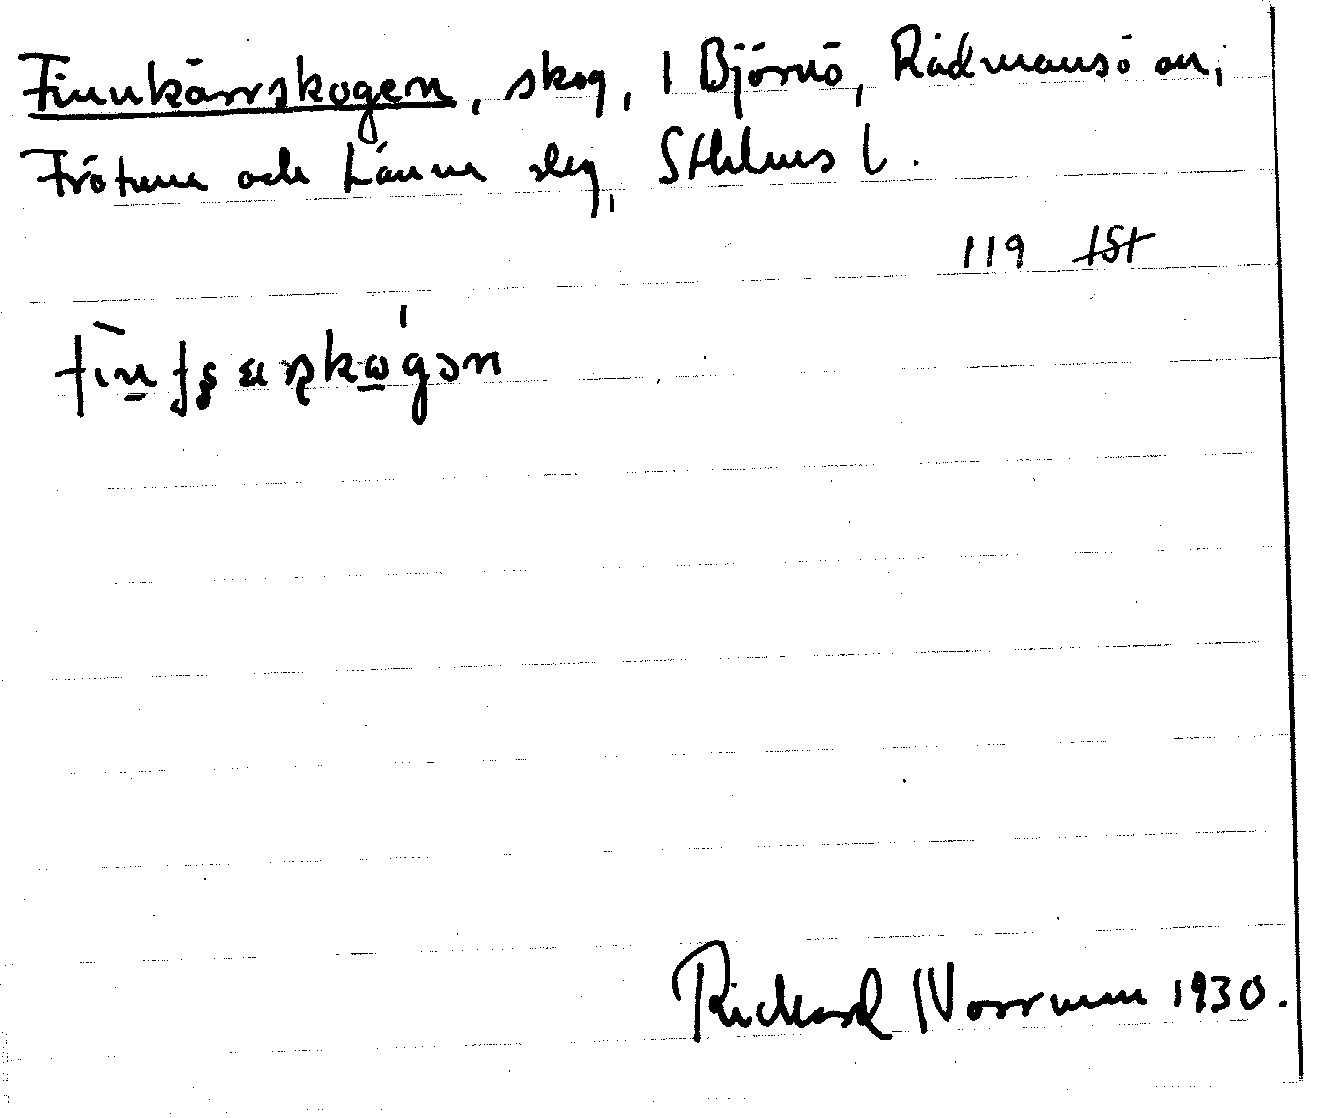 Finnkärrskogen, skog, i Björnö, Rådmansö sn,
Frötuna och Länna slg, Sthlms l.
119
Rickard Norrman 1930.